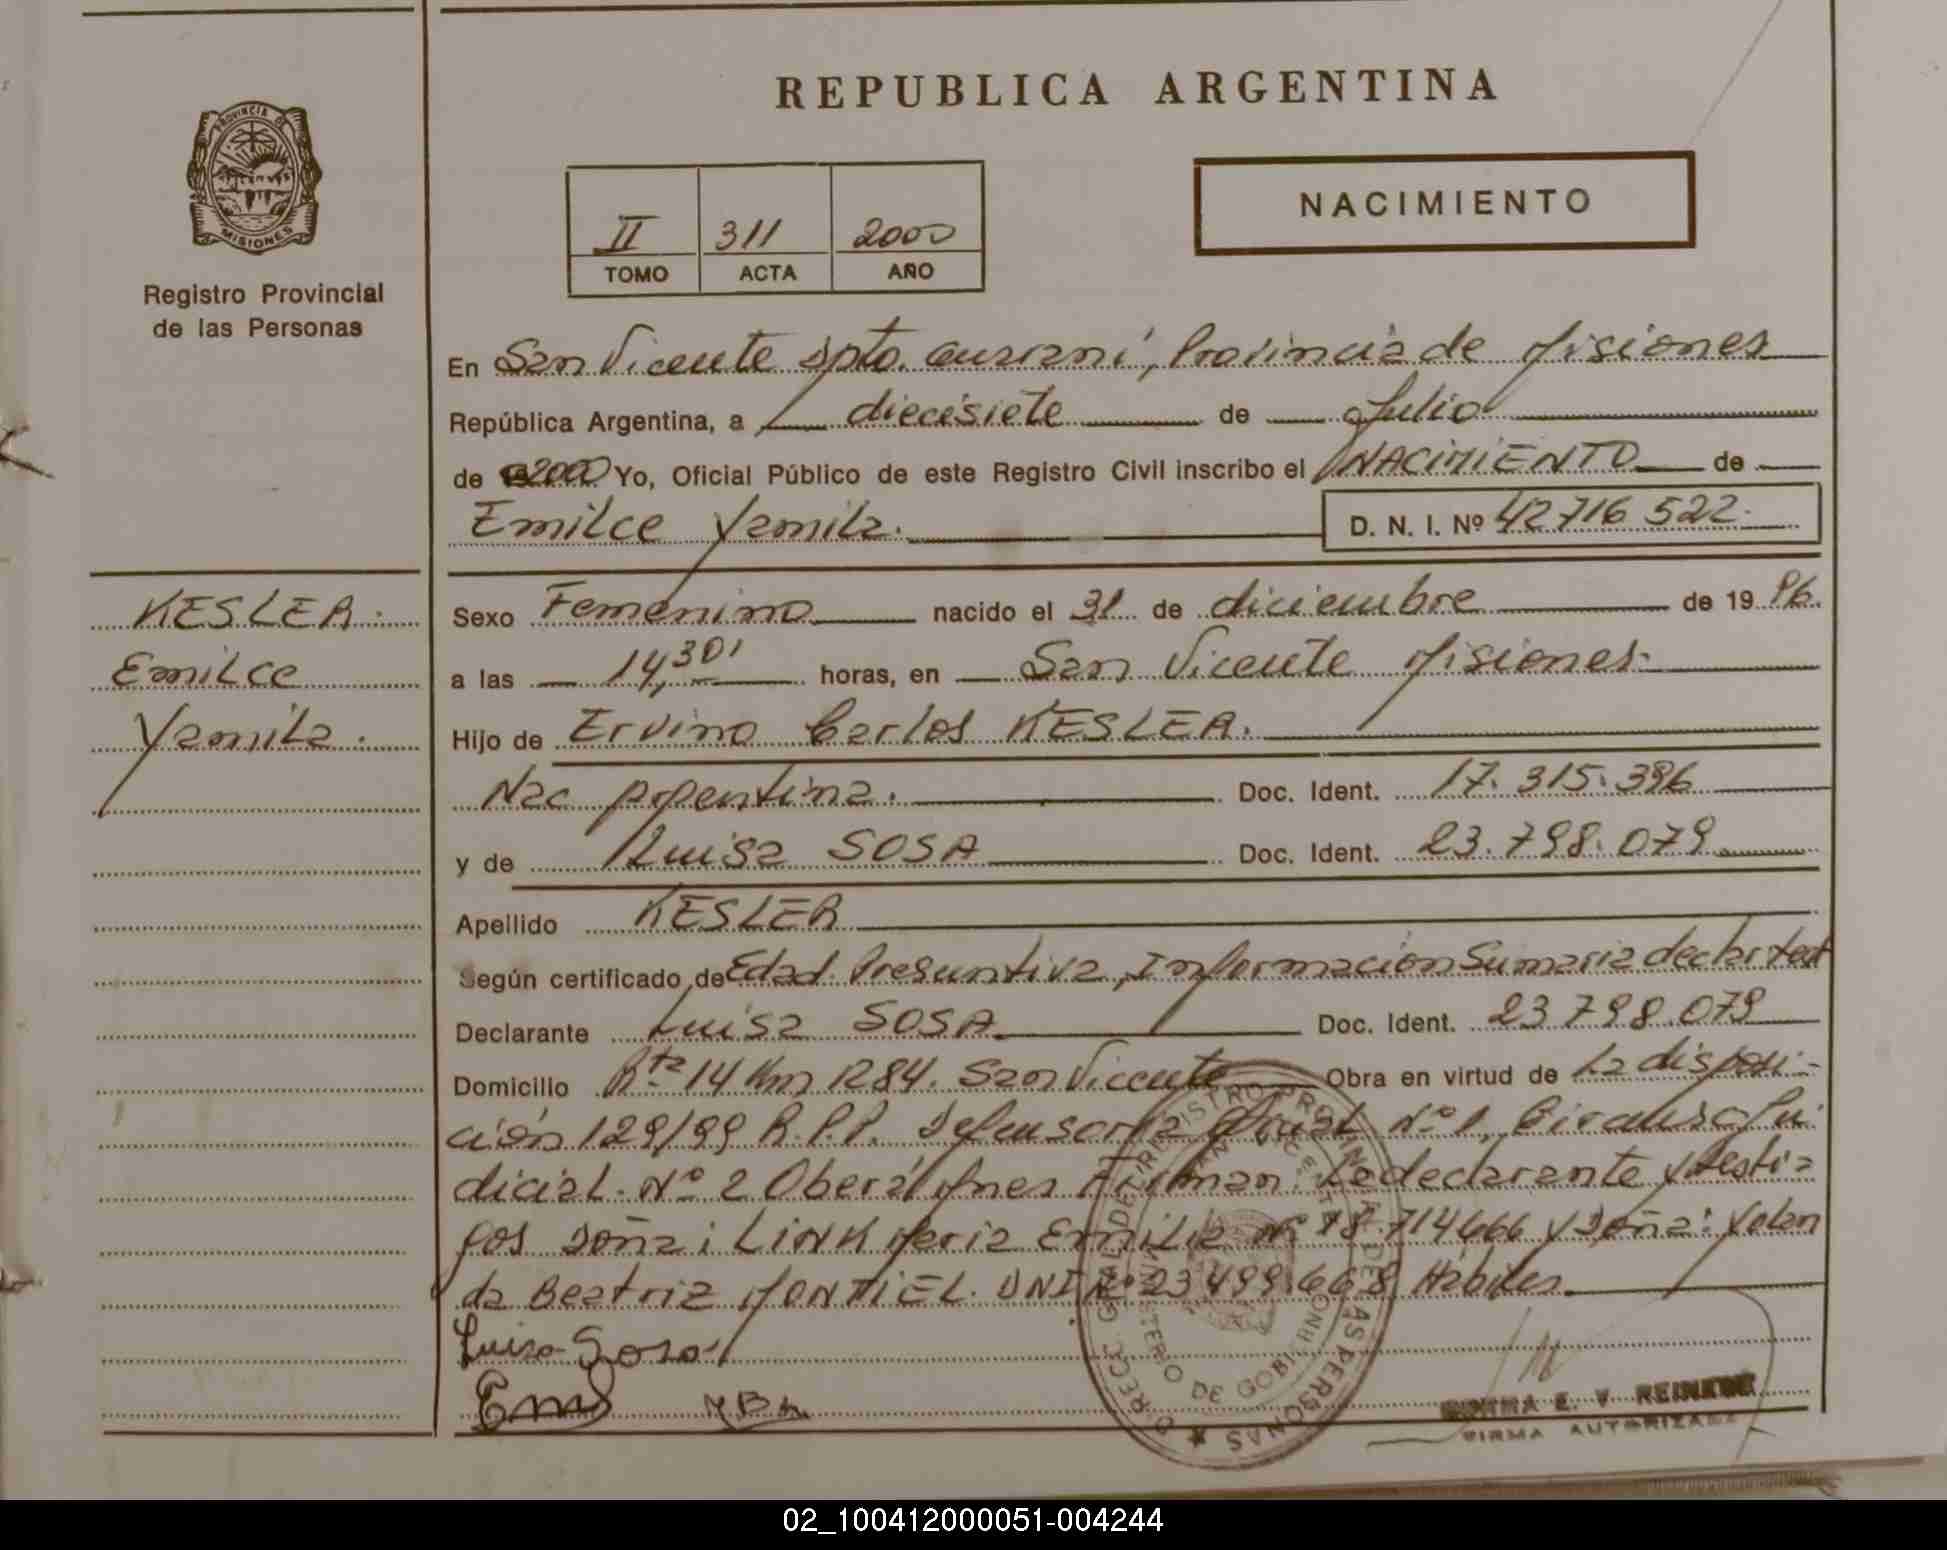 REPUBLICA ARGENTINA
PROVINCIA DE
MISIONES
Registro Provincial
de las Personas
NACIMIENTO
II 311 2000
TOMO ACTA AÑO
En San Vicente Dpto. Guaraní, Provincia de Misiones
República Argentina, a diecisiete de Julio
de 2000 Yo, Oficial Público de este Registro Civil inscribo el NACIMIENTO de
Emilce Yamila. D. N. I. Nº 42716 522
KESLER.
Emilce
Yamila.
Sexo Femenino nacido el 31 de diciembre de 19 96.
a las 14,30' horas, en San Vicente Misiones.
Hijo de Ervino Carlos KESLER.
Nac Argentina. Doc. Ident. 17.315.396
y de Luisa SOSA Doc. Ident. 23.798.079
Apellido KESLER
Según certificado de Edad Presuntiva, Información Sumaria declar test
Declarante Luisa SOSA Doc. Ident. 23 798 079
Domicilio Rta 14 Km 1284. San Vicente Obra en virtud de La disposi-
ción 129/99 R.P.P. Defensoría Nº 1, Circunsc Ju
dicial Nº 2 Oberá Mnes Firman La declarante y testi
gos Doña: LINK María Emilia 18.714666 y Doña: Yolan
da Beatriz MONTIEL. DNI Nº 23 499.668 Hábiles.
Luisa Sosa
REINKE
FIRMA AUTORIZADA
02_100412000051-004244